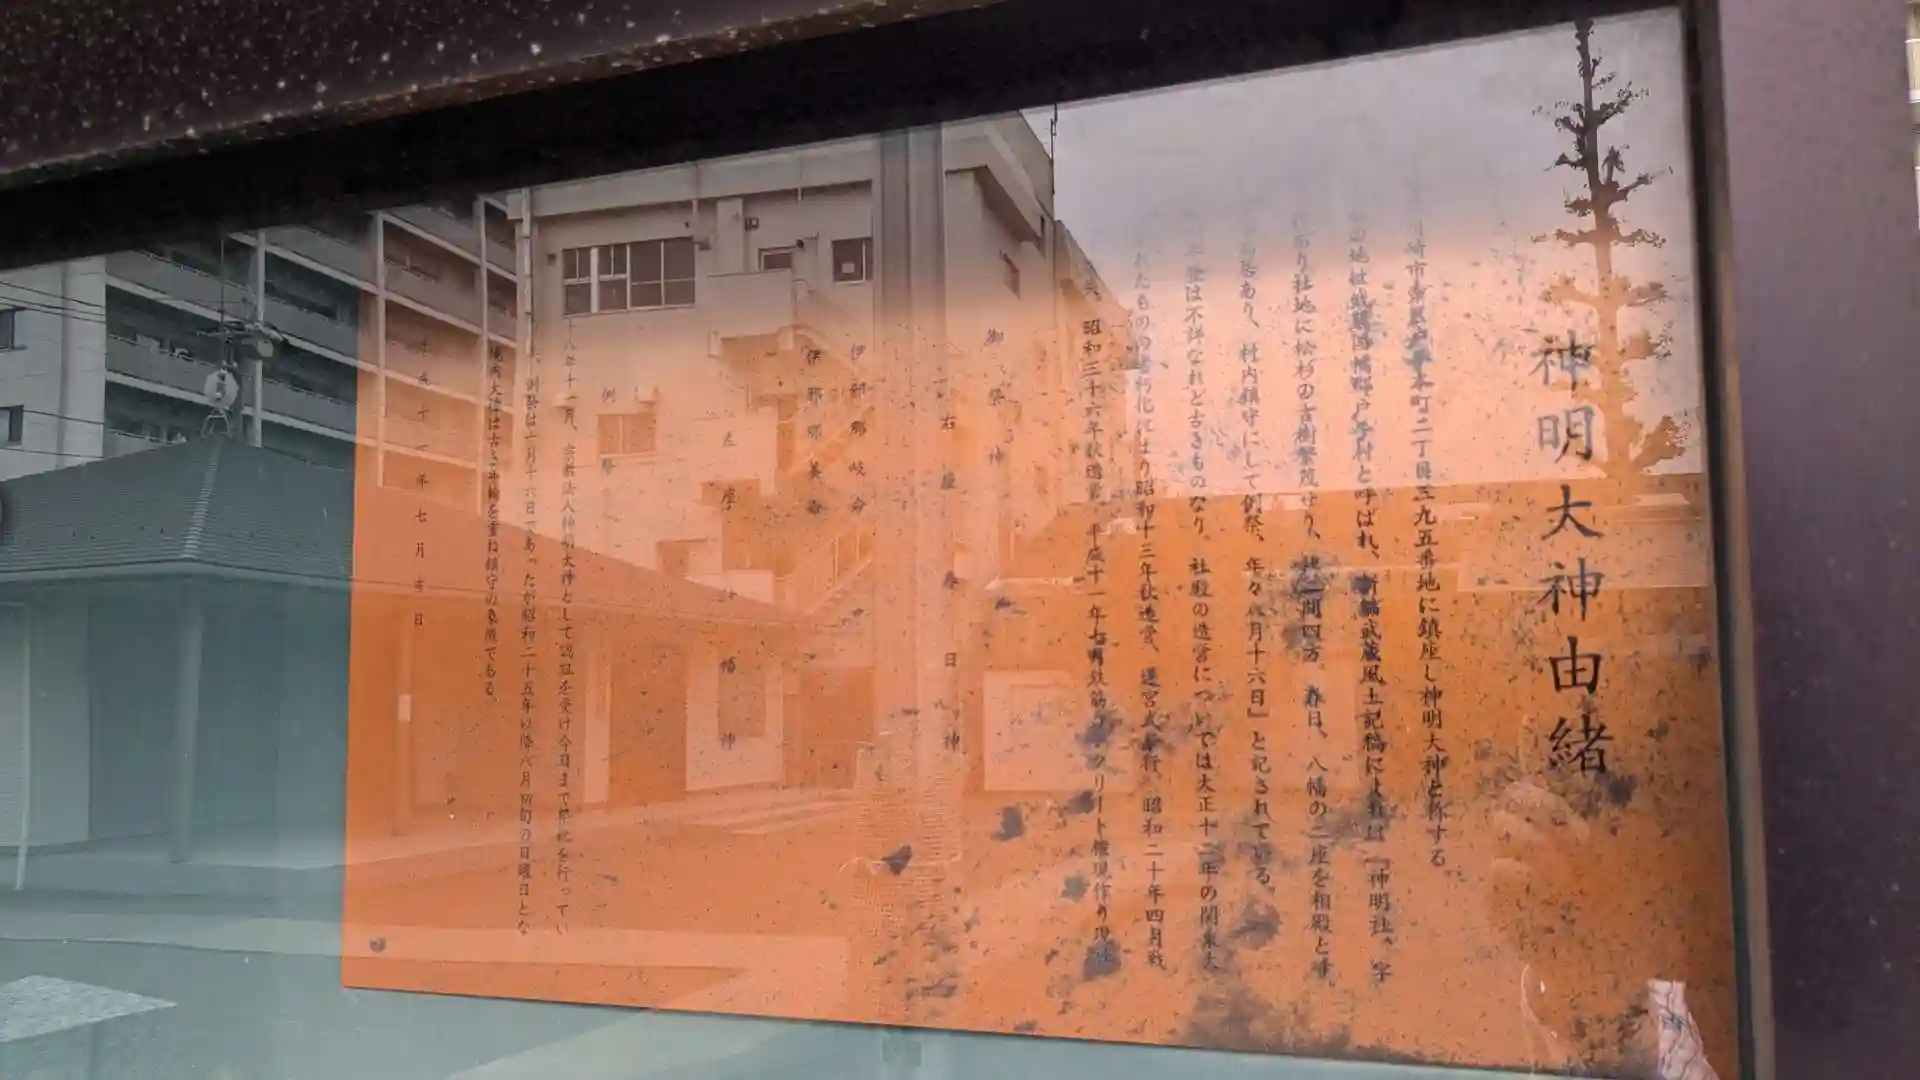 神明大神由緒
崎市幸区戸手本町二丁目三九五番地に鎮座し神明大神と称する。
の地は武蔵国橘郡戸手村と呼ばれ、新編武蔵風土記稿によれば『神明社、字
あり社地に松杉の古樹繁茂せり、社一間四方。春日、八幡の二座を相殿とす
あり、村内鎮守にして例祭、年々八月十六日』と記されている。
は不詳なれど古きものなり。社殿の造営については大正十二年の関東大
れたものの老朽化により昭和十三年秋造営、遷宮式挙行、昭和二十年四月戦
昭和三十六年秋造営。平成十一年七月鉄筋コンクリート権現作り現社
御祭神
右座 春日大神
伊邪那岐命
伊邪那美命
左座 八幡大神
例祭
八年十一月、宗教法人神明大神として認証を受け今日まで祭祀を行ってい
例祭は八月十六日であったが昭和二十五年以降八月初旬の日曜日とな
境内大樹は古き年輪を重ね鎮守の象徴である。
平成十一年七月吉日